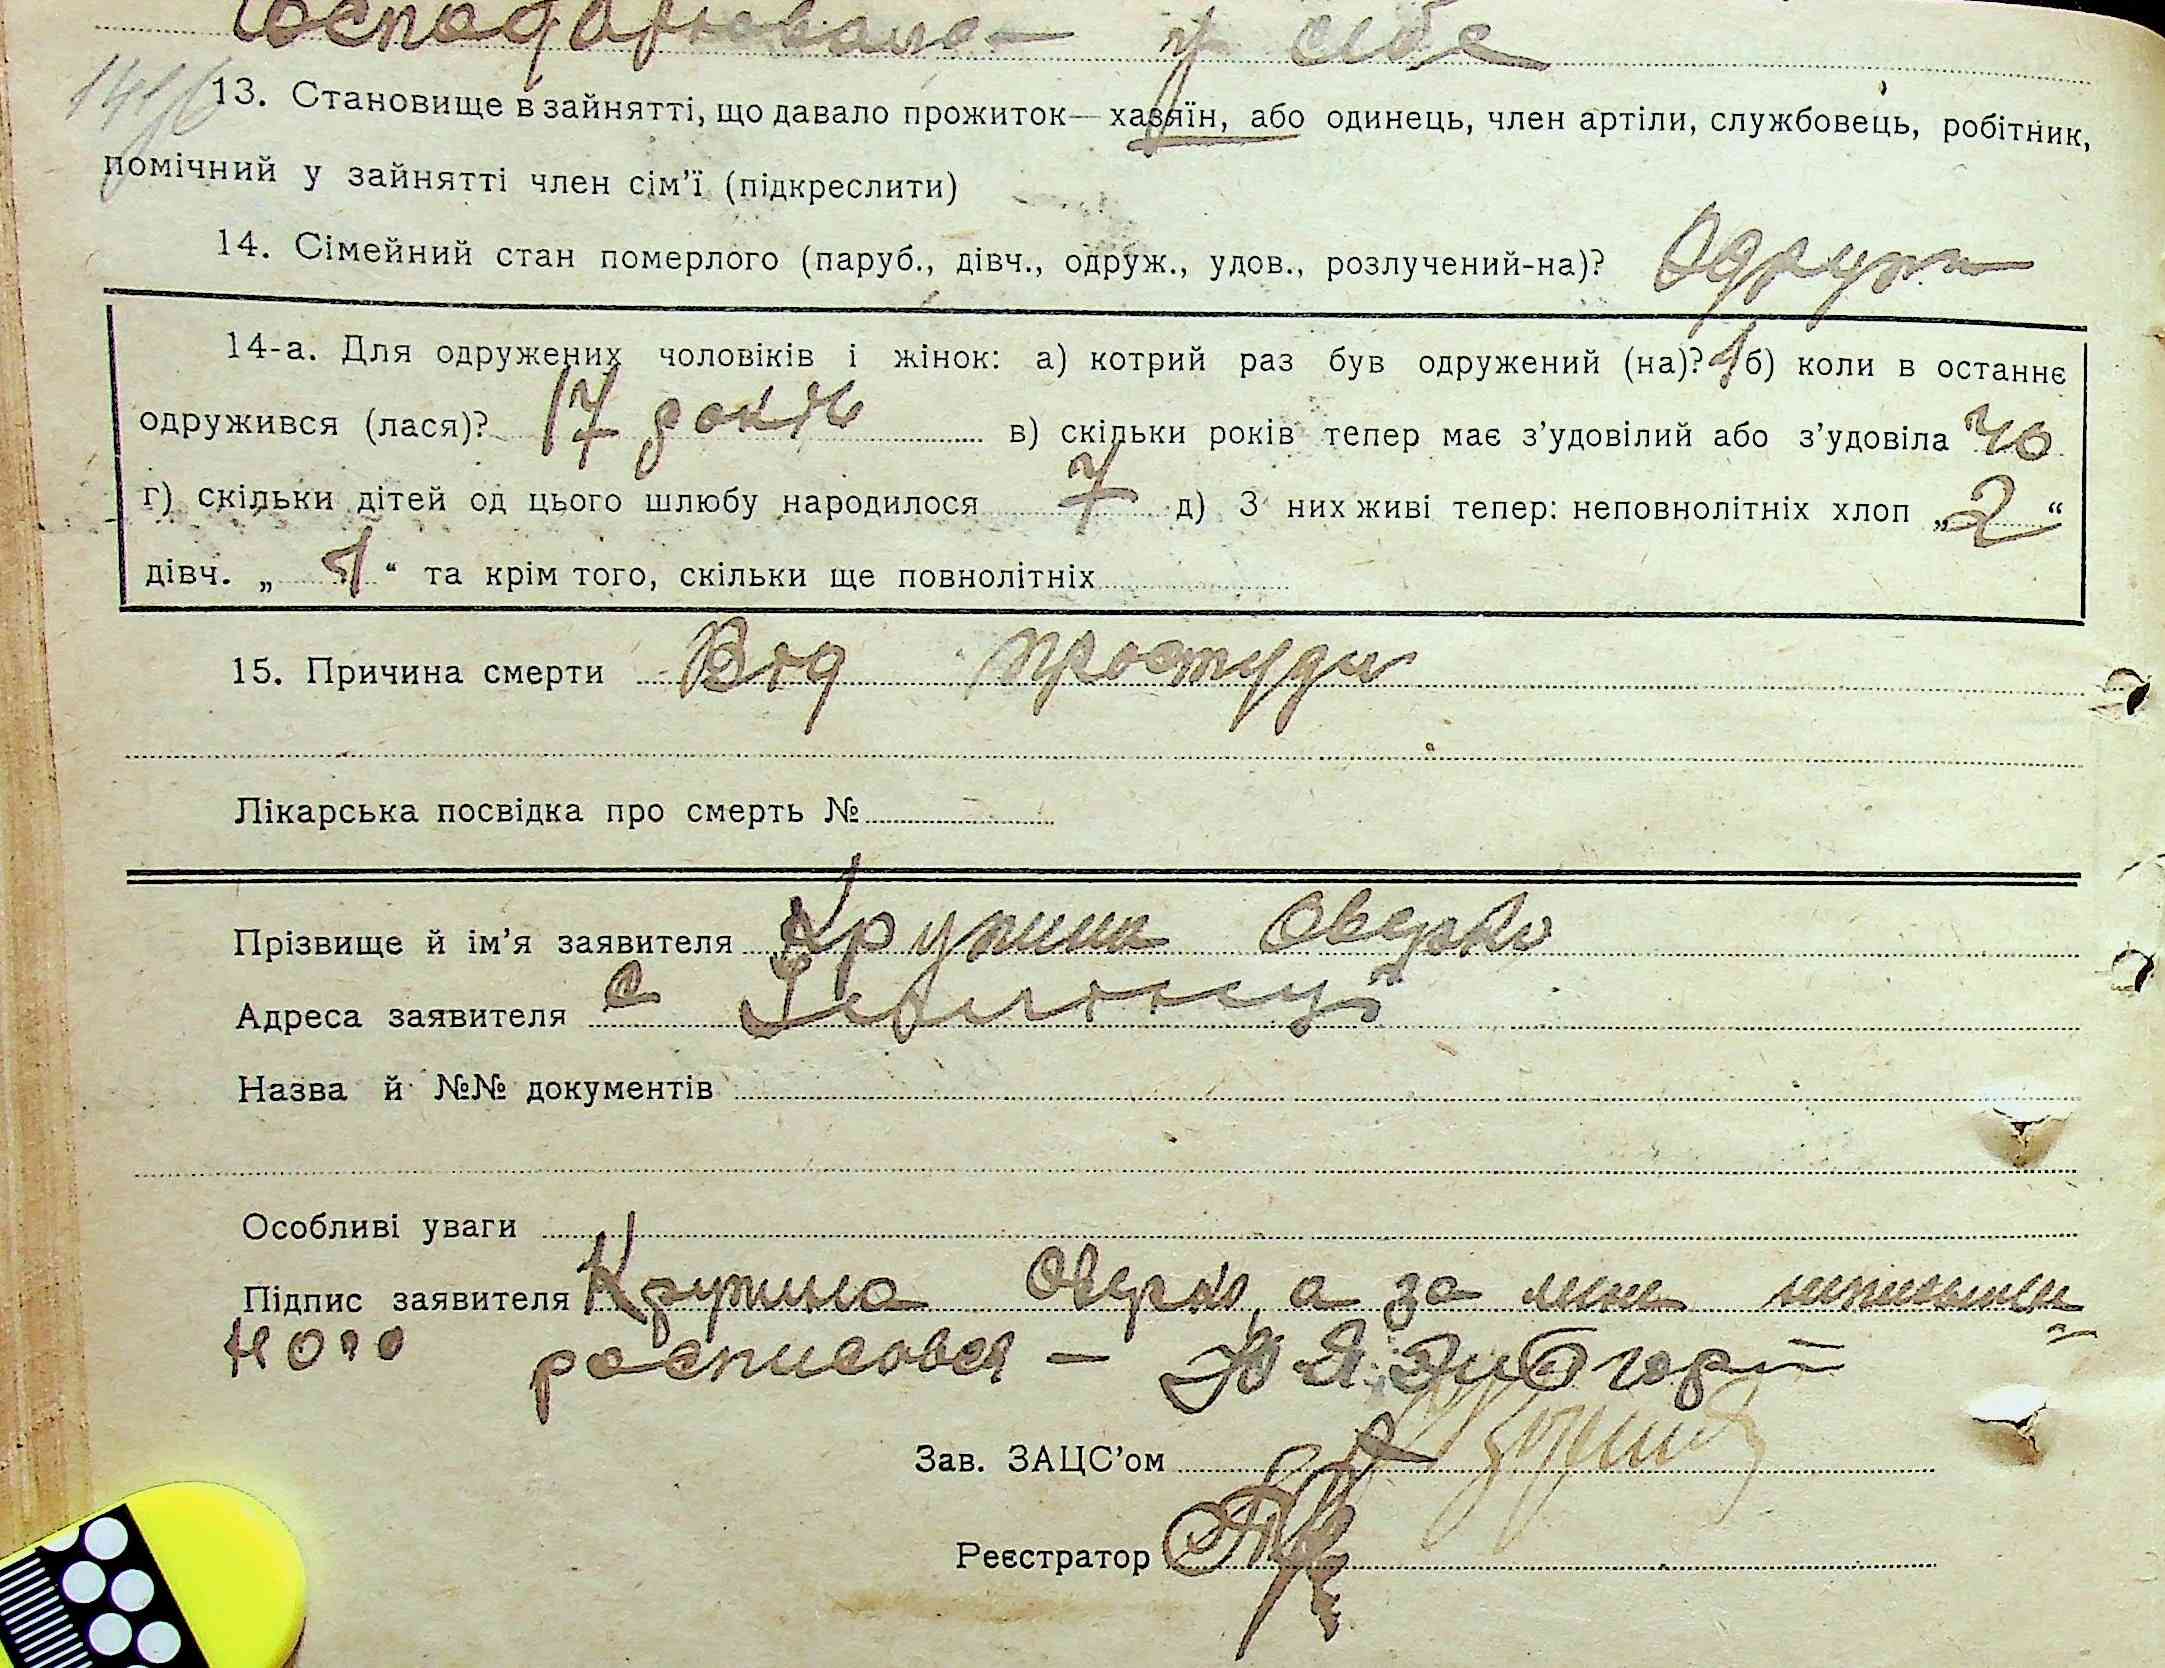 Господарювала у себе
13. Становище в зайнятті, що давало прожиток— хазяїн, або одинець, член артіли, службовець, робітник,
помічний у зайнятті член сім’ї (підкреслити)
14. Сімейний стан померлого (паруб., дівч., одруж., удов., розлучений-на)? Одруж
14-а. Для одружених чоловіків і жінок: а) котрий раз був одружений (на)? 1 б) коли в останнє
одружився (лася)? 17 років в) скільки років тепер має з’удовілий або з’удовіла 40
г) скільки дітей од цього шлюбу народилося 7 д) З них живі тепер: неповнолітніх хлоп „2“
дівч. „1“ та крім того, скільки ще повнолітніх
15. Причина смерти Від простуди
Лікарська посвідка про смерть №
Прізвище й ім’я заявителя Оверко
Адреса заявителя с
Назва й №№ документів
Особливі уваги
Підпис заявителя Оверко, а за
росписовся —
Зав. ЗАЦС’ом
Реєстратор